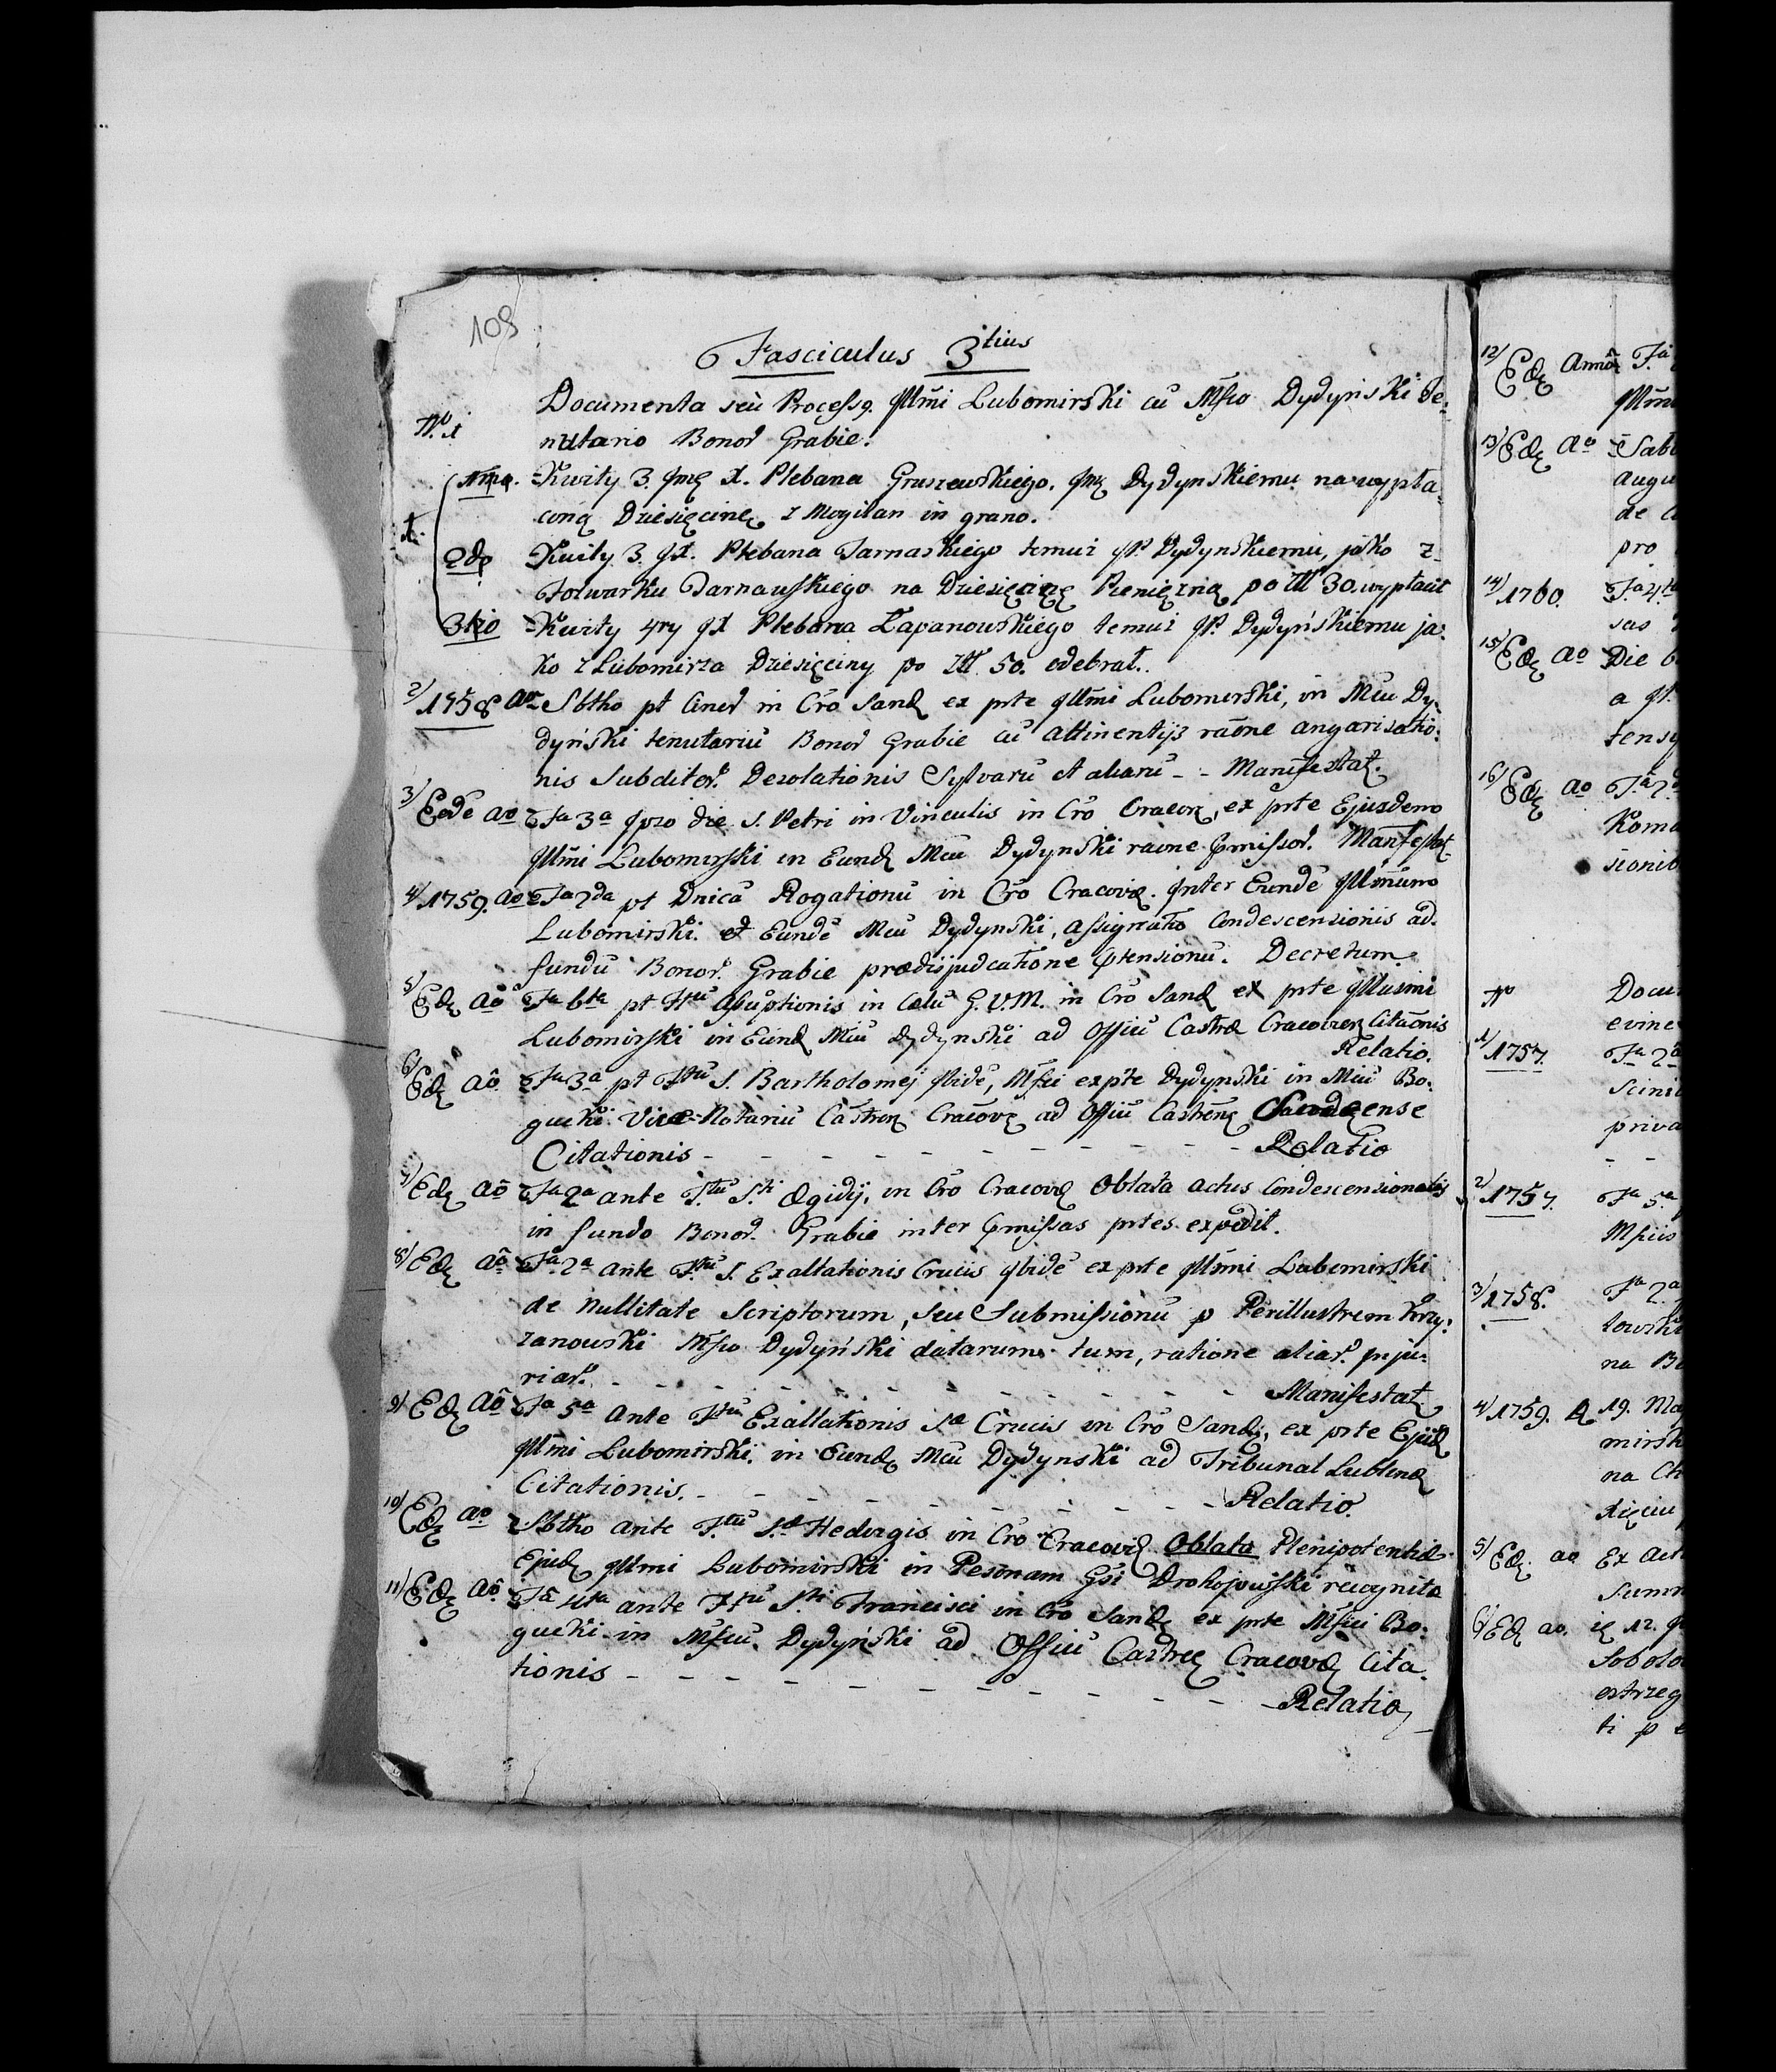 108
Fasciculus 3tius
Documenta seù Process9. Jllmi Lubomirski cū Mfco Dydyński Te:
No. 1 nutario Bonor Grabie.
1mo. Kwity 3. Jmę X. Plebana Gruszewskiego. Jmę Dydynskiemu na wypła,
coną Dziesięcinę z Mogilan in grano.
2do Kwity 3. JX. Plebana Tarnaskiego temuż JP. Dydynskiemu, jako z
Folwarku Tarnawskiego na Dziesięcinę Pieniężną po Złł 30. wypłacił
3tio Kwity 4ry JX Plebana Łapanowskiego temuż JP. Dydyńskiemu ja:
ko z Lubomirza Dziesięciny po Złł 50. odebrał.
2/ 1758 Ao Sbtho pt Ciner in Cro Sand ex prte Jllmi Lubomirski, in Mcu Dy,
dyński tenutariū Bonor Grabie cū attinentijs raōne angarisatio:
nis Subditor. Desolationis Sylvarū et aliarū - - Manifestat.
3/ Eodē ao Fa 3a ipso die S. Petri in Vinculis in Cro Cracov, ex prte Ejusdem
Jllmi Lubomirski in Eund Mcu Dydynski raōne pmissor. Manfestat
4/ 1759. ao Fa 2da pt Dnicā Rogationū in Cro Cracoviæ. Inter Eundē Jllmum
Lubomirski et Eundē Mcu Dydynski, assignatio Condescensionis ad
fundū Bonor. Grabie prædijudicatione ptensionū. Decretum.
5/ Ed ao Fa 6ta pt Ftū Assuptionis in Cœlū G.V.M. in Cro Sand ex prte Jllusmi
Lubomirski in Eund Mcu Dydynski ad Offiū Castræ Cracovien Citaōnis
Relatio.
6/ Ed ao. Fa 3a pt Ftū S. Bartholomej Ibidē, Mfci ex pte Dydynski in Mcū Bo:
gucki Vice-Notariū Castren Cracov ad Offiū Castrens Sandecense
Citationis - - - - - - - - - Relatio
7/ Ed ao Fa 2a ante F.tū S.ti Ægidij, in Cro Cracov Oblata actus Condescensionalis
in fundo Bonor. Grabie inter pmissas prtes expedit.
8/ Ed ao Fa 2a ante F.tū S. Exaltationis Crucis Ibidē ex prte Jllmi Lubomirski
de Nullitate Scriptorum, seu Submissionū p Perillustrem Krzy:
zanowski Mfco Dydyński datarum. tum, ratione aliar. injū:
riar. - - - - - - - - - - - Manifestat
9/ Ed ao Fa 5a Ante Ftū Exaltationis Sæ Crucis in Cro Sand, ex prte Ejusd
Jllmi Lubomirski in Eund Mcu Dydynski ad Tribunal Lublins
Citationis. - - - - - - - - - Relatio.
10/ Ed ao Sbtho ante F.tū S.æ Hedvigis in Cro Cracov Oblata Plenipotentiæ
Ejusd Jllmi Lubomirski in Pesonam Gsi Drohojowski recognitæ
11/ Ed ao. Fa 4ta ante Ftū Sti Francisci in Cro Sand ex prte Mfici Bo:
gucki in Mfcu Dydyński ad Offiū Castren Cracov Cita.
tionis - - - - - - - - - - - Relatio
12/ Ed Anno Fa
Jllm
13/ Ed Ao Sab
Augu
de
pro
14/ 1760. Fa 4ta
sas
15/ Ed Ao Die
a JP.
tensy
16/ Ed ao Fa 2
Koma
sionib
No Docu
evine
1/ 1757. Fa 2a
Scini
priva
2/ 1757. Fa 5a
Mfiis
3/ 1758. Fa 2a
towski
na
4/ 1759. 19. Ma
mirsk
na Ch
5/ Ed. ao Ex Act
sum
6/ Ed ao. 12.
Sobolo
ostrzeg
ti p